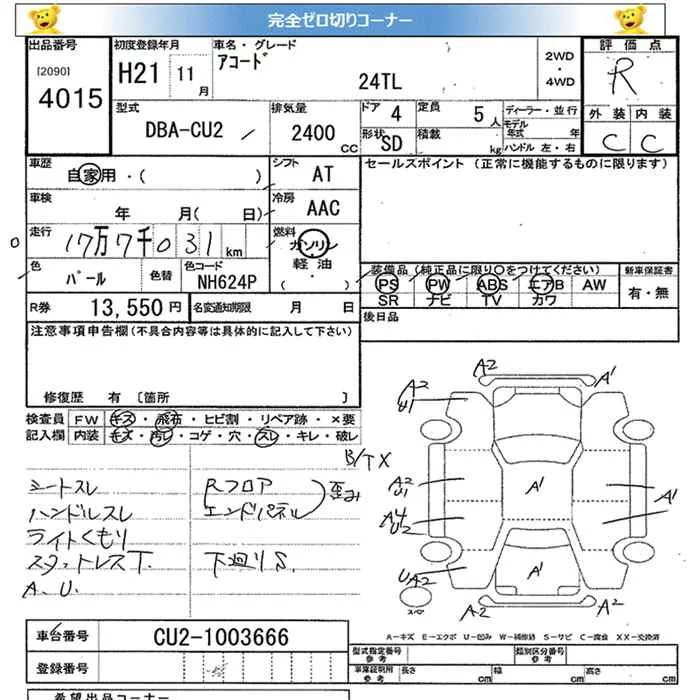 完全ゼロ切りコーナー
出品番号
[2090]
4015
初度登録年月
H21 11月
車名・グレード
アコード
24TL
2WD
・
4WD
評価点
R
外装 内装
C C
型式
DBA-CU2
排気量
2400 CC
ドア 4
定員 5 人
形状 SD
積載 kg
ディーラー・並行
モデル年式 年
ハンドル 左・右
車歴
自家用・( )
シフト AT
車検
年 月( 日)
冷房 AAC
走行
17万7千031km
燃料
ガソリン
軽油
・( )
色
パール
色替
色コード
NH624P
R券 13,550円
名変通知期限 月 日
セールスポイント (正常に機能するものに限ります)
装備品 (純正品に限り○をつけてください)
PS PW ABS エアB AW
SR ナビ TV カワ
新車保証書
有・無
後日品
注意事項申告欄(不具合内容等は具体的に記入して下さい)
修復歴 有 [箇所 ]
検査員記入欄
FW キズ・飛石・ヒビ割・リペア跡・×要
内装 キズ・汚レ・コゲ・穴・スレ・キレ・破レ
シートスレ
ハンドルスレ
ライトくもり
スタットレスT.
A.U.
Rフロア
エンドパネル
歪み
下廻りS.
B/TX
A2
A1
A2
U1
A2
U1
A1
A1
A4
U2
UA2
A1
A2
A2
スペア
A-キズ E-エクボ U-凹み W-補修跡 S-サビ C-腐食 XX-交換済
車台番号 CU2-1003666
登録番号
型式指定番号
参考
類別区分番号
参考
車庫証明用
参考
長さ cm 幅 cm 高さ cm
希望出品コーナー